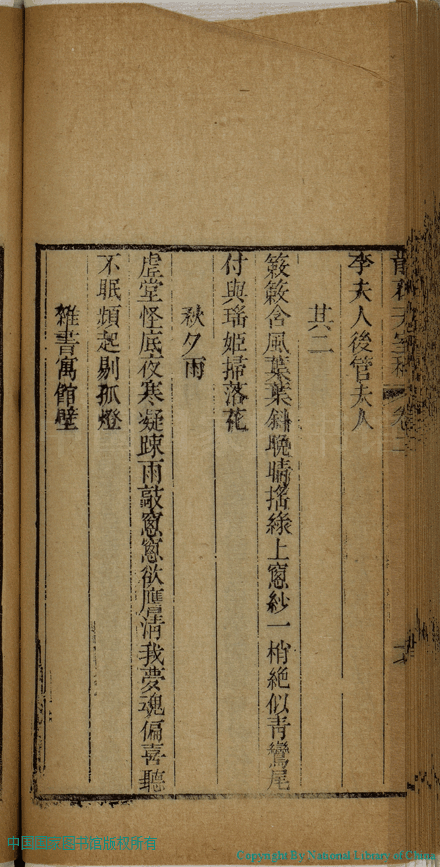 李夫人後管夫人
其二
簌簌含風葉葉斜晩晴搖綠上窻紗一梢絶似青鸞尾
付與瑤姬掃落花
秋夕雨
虛堂怪底夜寒凝踈雨敲窻窻欲譍清我夢魂偏喜聽
不眠頻起剔孤燈
雜書寓館壁
中国国家图书馆版权所有
Copyright By National Library of China